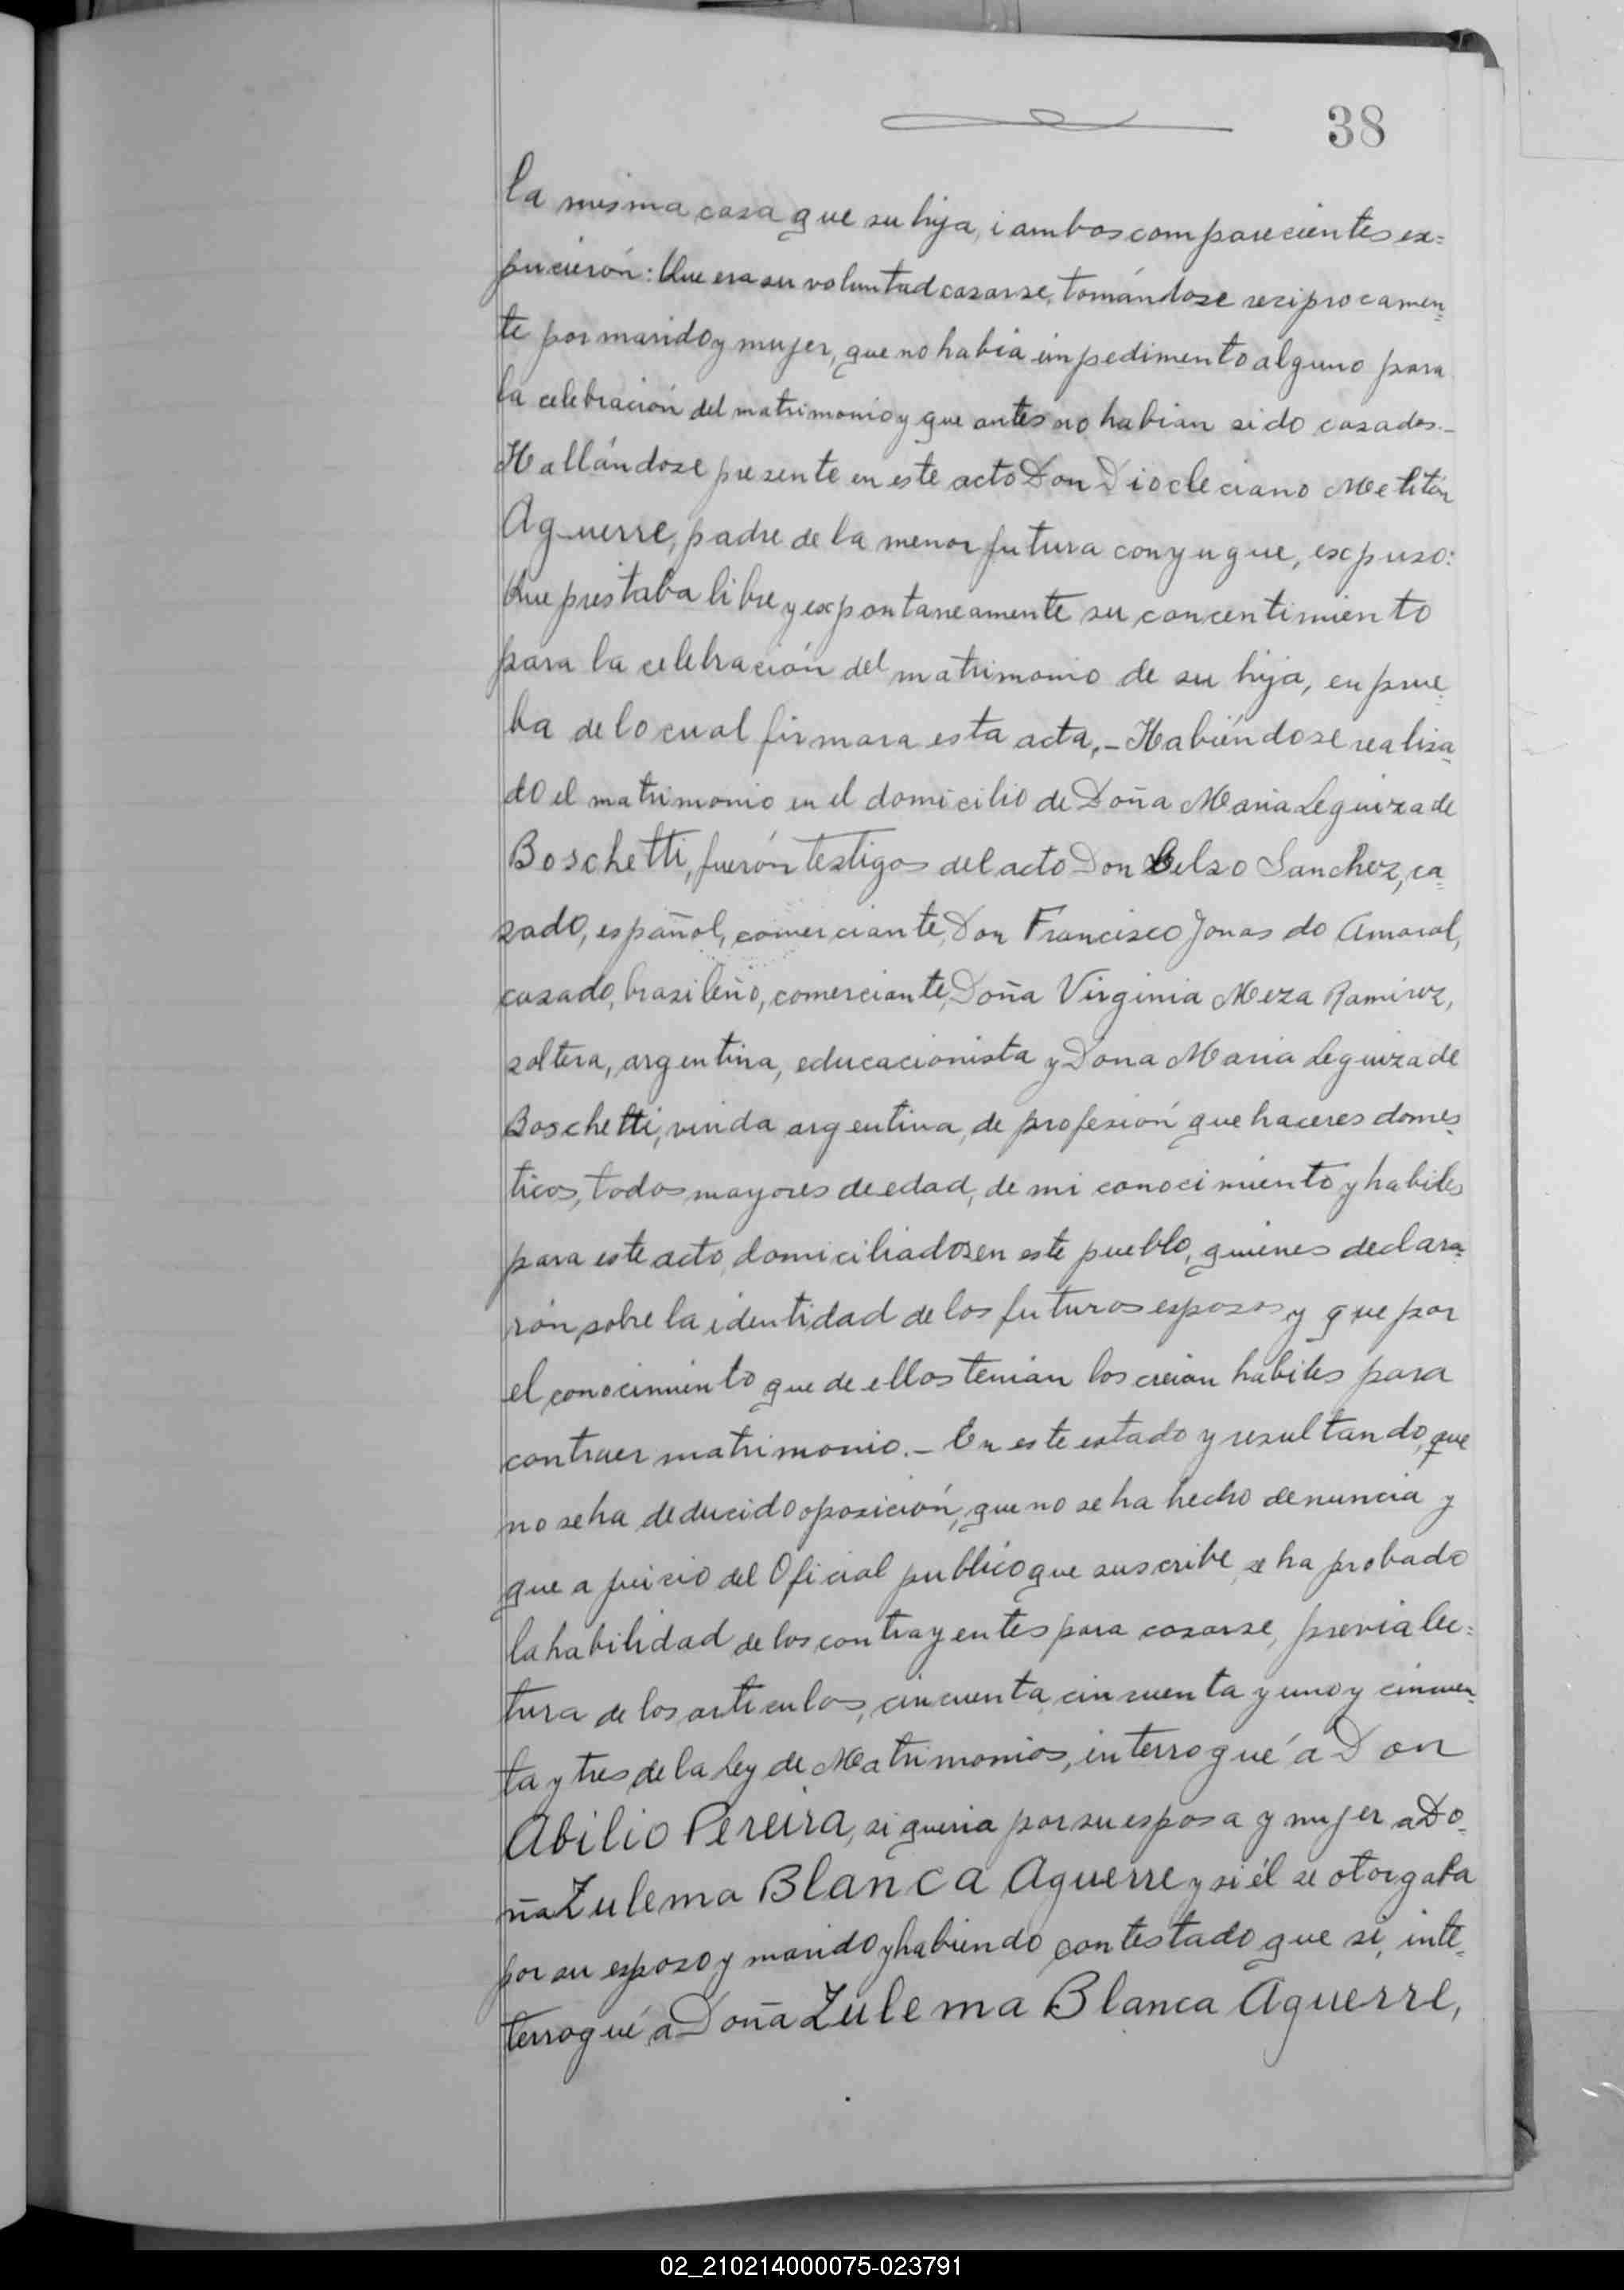 38
la misma casa que su hija, i ambos comparecientes ex=
pucierón: Que era su voluntad casarse, tomándose resiprocamen=
te por marido y mujer, que no habia impedimento alguno para
la celebración del matrimonio y que antes no habian sido casados.-
Hallándose presente en este acto Don Diocleciano Melitón
Aguerre, padre de la menor futura conyugue, expuso:
Que prestaba libre y expontaneamente su concentimiento
para la celebración del matrimonio de su hija, en prue-
ba de lo cual firmara esta acta,- Habiéndose realisa-
do el matrimonio en el domicilio de Doña Maria Leguiza de
Boschetti, fuerón testigos del acto Don Celso Sanchez, ca-
sado, español, comerciante, Don Francisco Jonas do Amaral,
casado, brasileño, comerciante, Doña Virginia Meza Ramirez,
soltera, argentina, educacionista y Dona Maria Leguiza de
Boschetti, viuda argentina, de profesión que haceres domes-
ticos, todos mayores de edad, de mi conocimiento y habiles
para este acto, domiciliados en este pueblo, quienes declara-
rón sobre la identidad de los futuros esposos y que por
el conocimiento que de ellos tenian los creian habiles para
contraer matrimonio.- En este estado y resultando, que
no se ha deducido oposición, que no se ha hecho denuncia y
que a juicio del Oficial publico que suscribe, se ha probado
la habilidad de los contrayentes para casarse, previa lec=
tura de los articulos, cincuenta, cincuenta y uno y cincuen-
ta y tres de la Ley de Matrimonios, interrogué a Don
Abilio Pereira, si queria por su esposa y mujer a Do-
ña Zulema Blanca Aguerre y si él se otorgaba
por su esposo y marido y habiendo contestado que si, inte-
terrogué a Doña Zulema Blanca Aguerre,
02_210214000075-023791